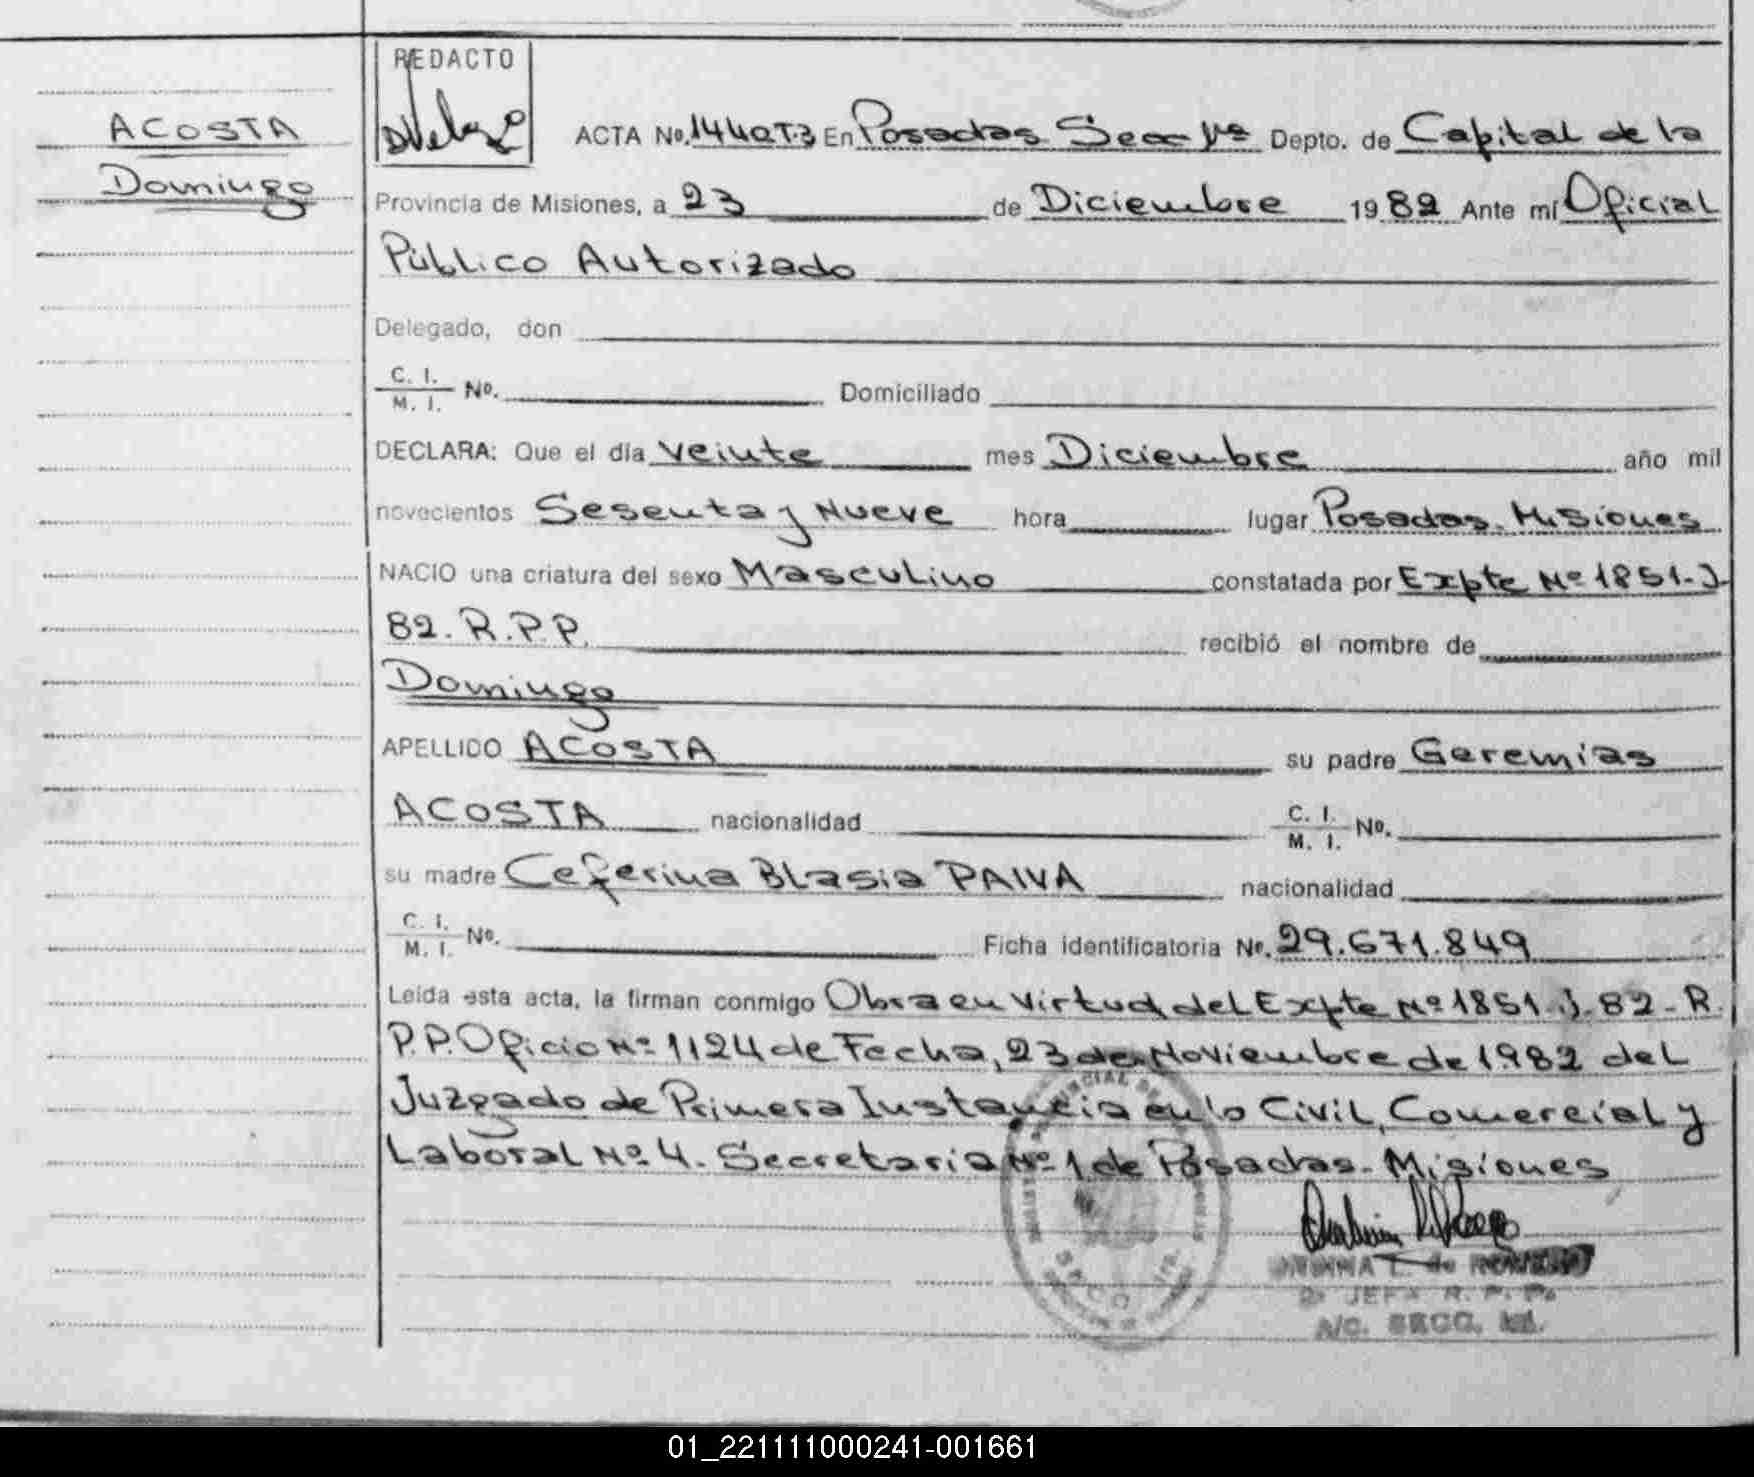 REDACTO
ACOSTA
Domingo
ACTA No. 1440T.3 En Posadas Secc 1ª Depto. de Capital de la
Provincia de Misiones, a 23 de Diciembre 1982 Ante mí Oficial
Público Autorizado
Delegado, don
C. I. / M. I. No. Domiciliado
DECLARA: Que el día veinte mes Diciembre año mil
novecientos Sesenta y Nueve hora lugar Posadas. Misiones
NACIO una criatura del sexo Masculino constatada por Expte Nº 1851-J-
82. R.P.P. recibió el nombre de
Domingo
APELLIDO ACOSTA su padre Geremías
ACOSTA nacionalidad C. I. / M. I. No.
su madre Ceferina Blasia PAIVA nacionalidad
C. I. / M. I. No. Ficha identificatoria No. 29.671.849
Leída esta acta, la firman conmigo Obra en Virtud del Expte Nº 1851-J-82-R.
P.P. Oficio Nº 1124 de Fecha, 23 de Noviembre de 1982 del
Juzgado de Primera Instancia en lo Civil, Comercial y
Laboral Nº 4. Secretaria Nº 1 de Posadas. Misiones
JEFA R. P. P.
A/C. SECC.
01_221111000241-001661